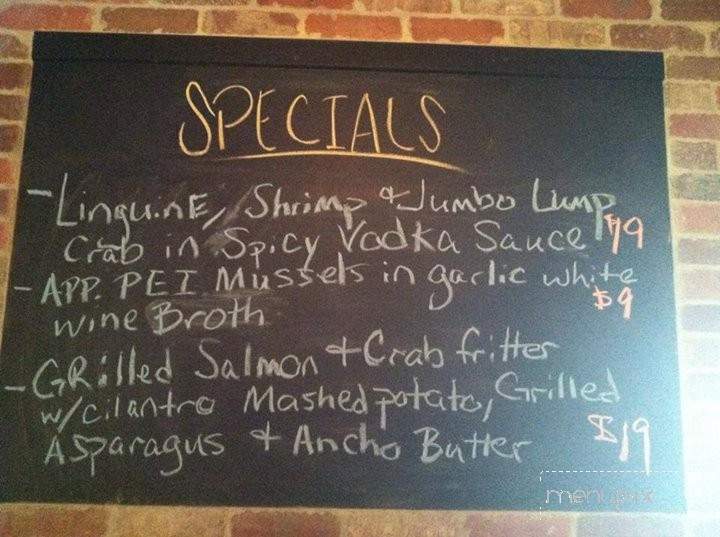 SPECIALS
- Linguine, Shrimp & Jumbo Lump
Crab in Spicy Vodka Sauce $19
- APP. PEI Mussels in garlic white
wine Broth $9
- GRilled Salmon + Crab fritter
w/cilantro Mashed potato, Grilled
Asparagus + Ancho Butter $19
menupix